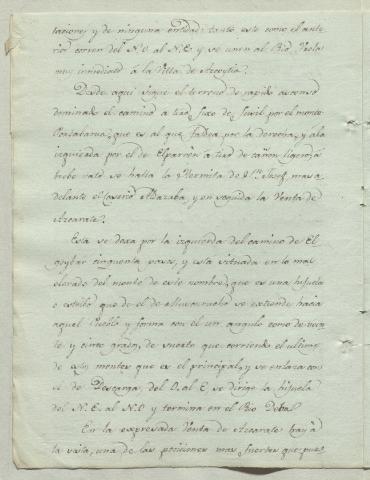 taciones y de ninguna entidad: tanto este como el ante
rior corren del N.O. al N.E. y se unen al Rio Urola
muy inmediato á la Villa de Azcoytia.
Desde aqui sigue el terreno de rapido ascenso
dominado el camino á tiro fixo de fusil por el monte
que es al que faldea por la derecha, y á la
izquierda por el de Elparren á tiro de cañon ligero, á
breve rato se halla la Hermita de S.n Josef, mas a
delante el Caserio Aldazabal y en seguida la Venta de
Azcarate.
Esta se dexa por la izquierda del camino de El
goybar cinquenta pasos, y está situada en lo mas
elevado del monte de este nombre, que es una hijuela
o estribo que de el de se extiende hacia
aquel Pueblo y forma con el un angulo como de treyn
ta y cinco grados, de suerte que corriendo el ultimo
de estos montes que es el principal, y se enlaza con
el de Descarga, del O. al E. se dirige la hijuela
del N.E. al N.O y termina en el Rio Deba.
En la expresada Venta de Azcarate hay á
la vista, una de las posiciones mas fuertes que pues